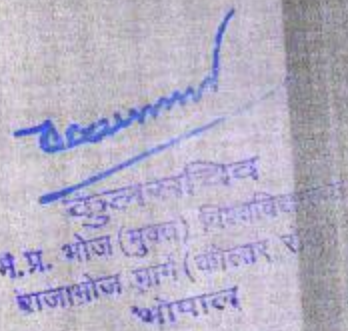 कुलसचिव
म.प्र. भोज (मुक्त) विश्वविद्यालय
राजाभोज मार्ग (कोलार
भोपाल